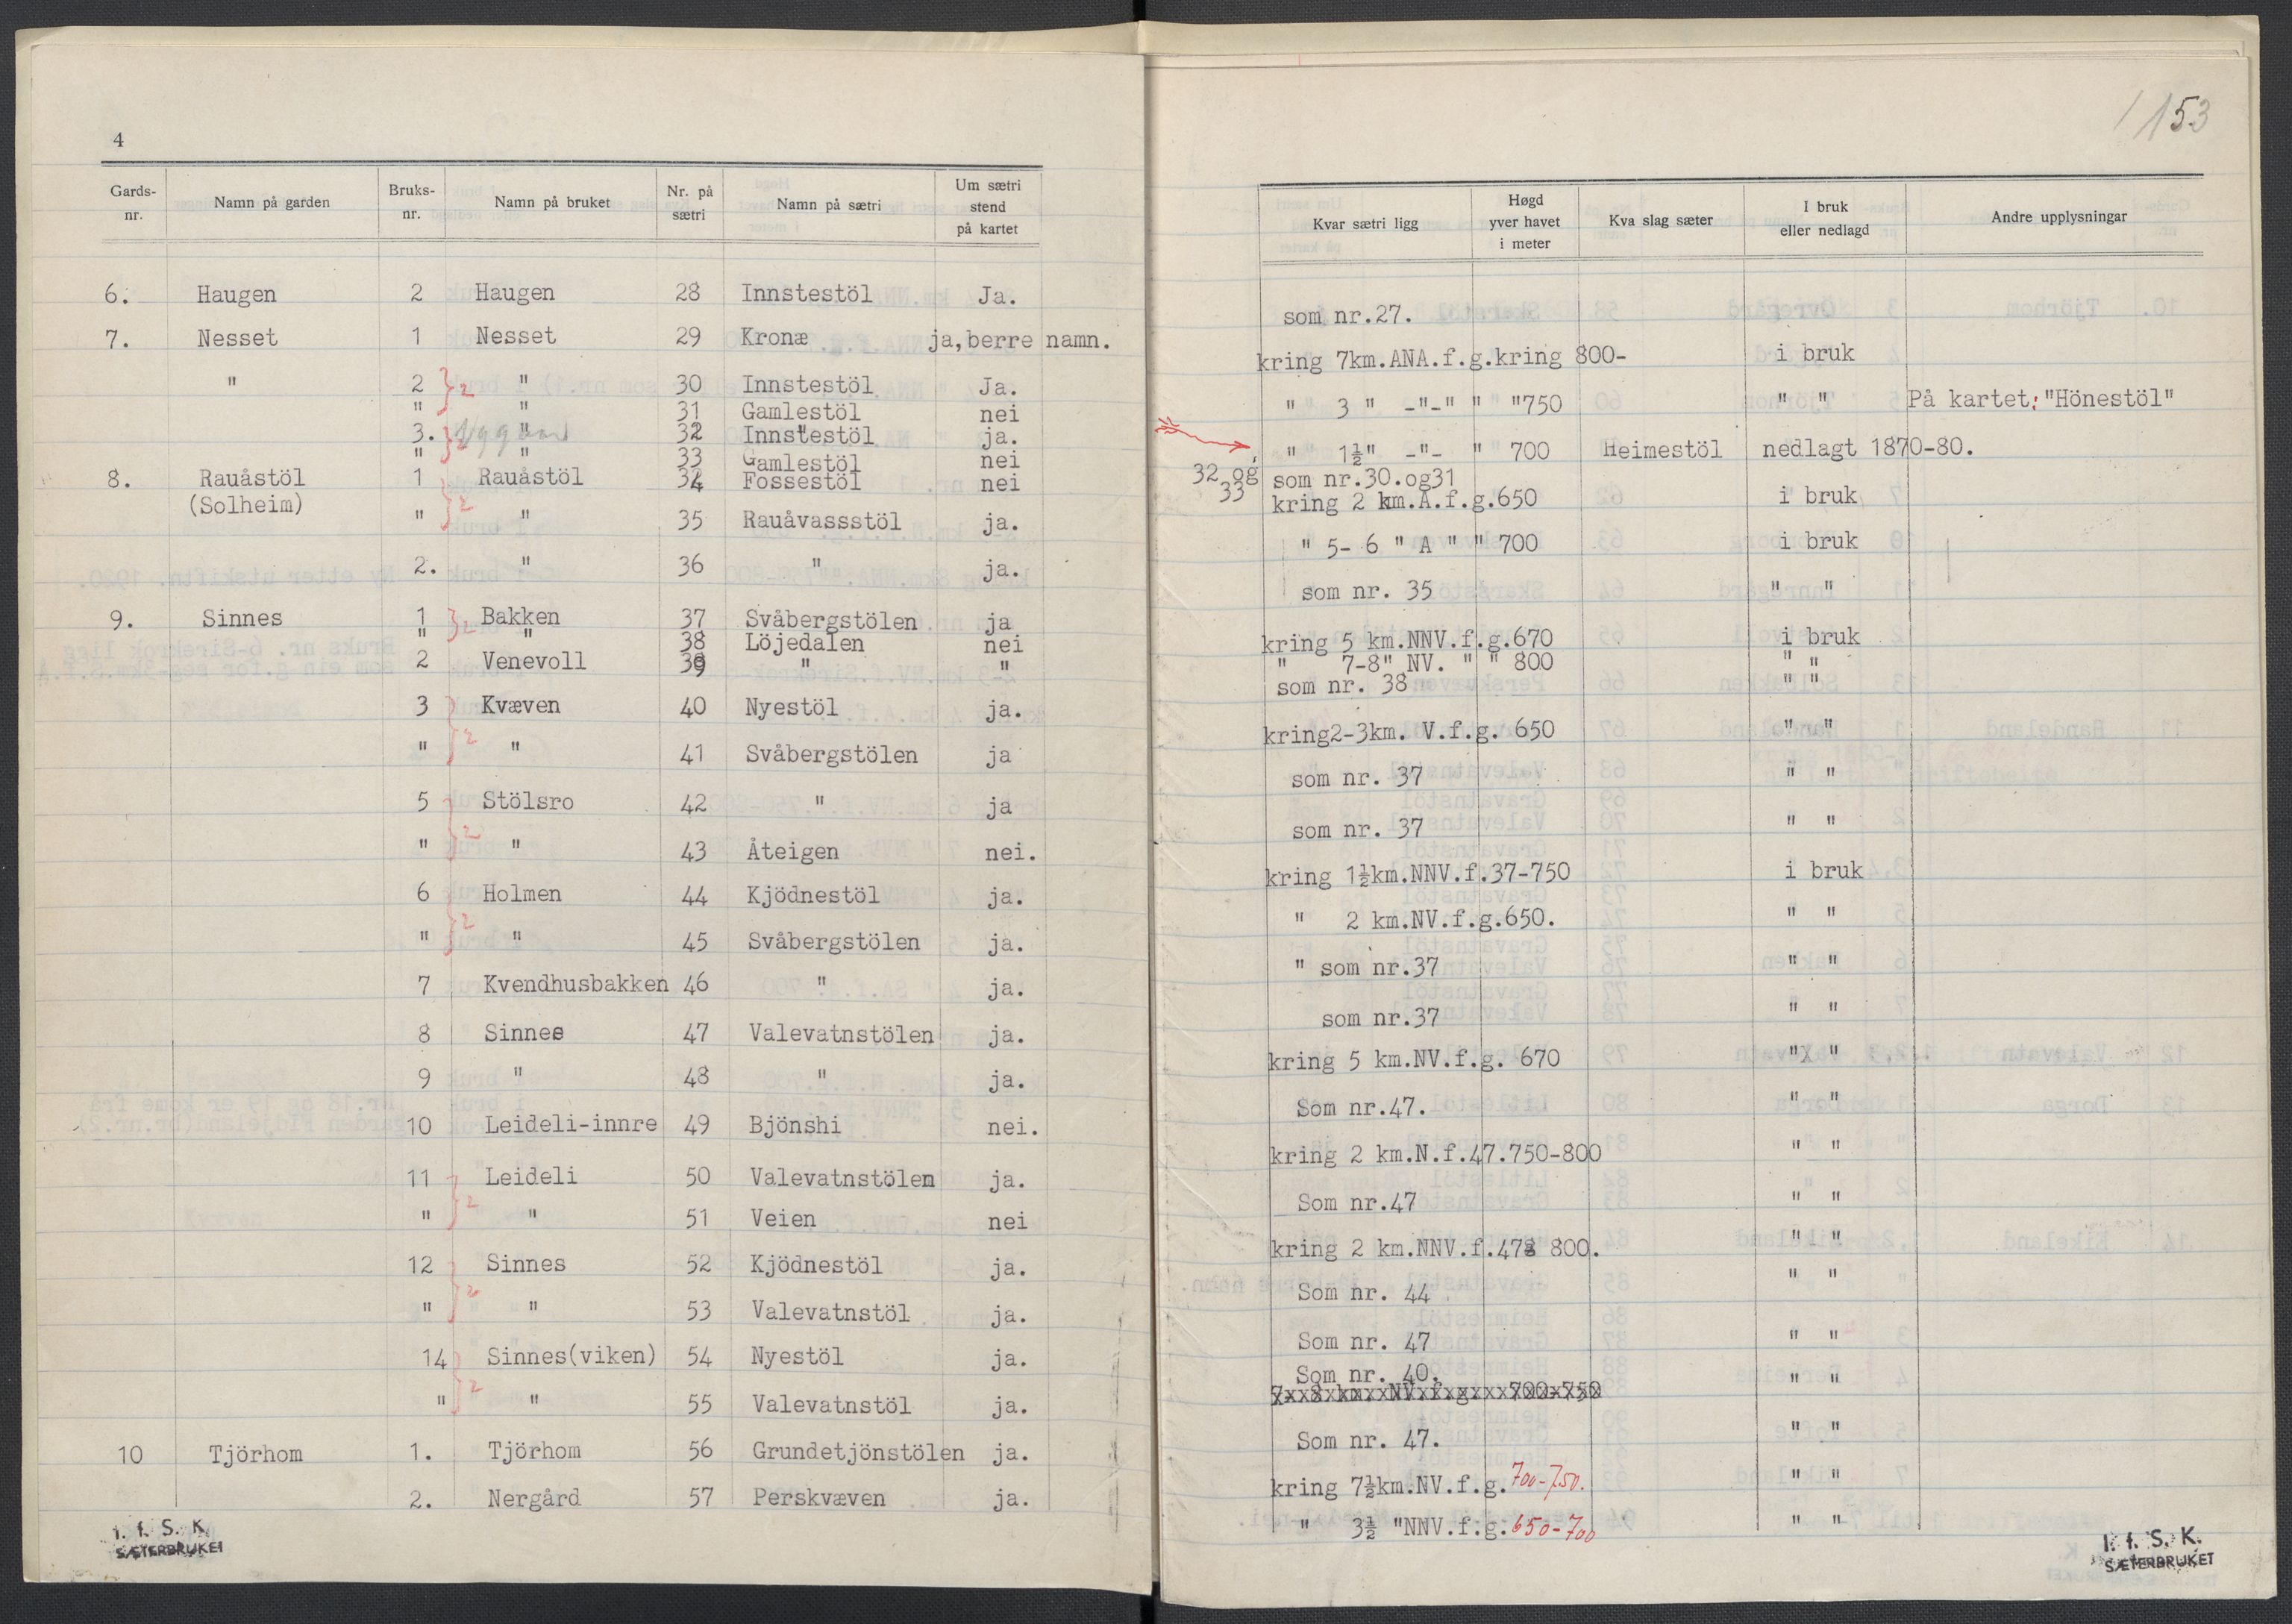 4
Gards-nr. Namn på garden Bruks-nr. Namn på bruket Nr. på sætri Namn på sætri Um sætri stend på kartet
6. Haugen 2 Haugen 28 Innstestöl Ja.
7. Nesset 1 Nesset 29 Kronæ ja, berre namn.
" 2 } 2 " 30 Innstestöl Ja.
" " 31 Gamlestöl nei
3. } 2 " 32 Innstestöl ja.
" " 33 Gamlestöl nei
8. Rauåstöl 1 Rauåstöl 34 Fossestöl nei
(Solheim) " } 2 " 35 Rauåvassstöl ja.
2. " 36 " ja.
9. Sinnes 1 } 2 Bakken 37 Svåbergstölen ja
" " 38 Löjedalen nei
2 Venevoll 39 " "
3 Kvæven 40 Nyestöl ja.
" } 2 " 41 Svåbergstölen ja
5 Stölsro 42 " ja
" } 2 " 43 Åteigen nei.
6 Holmen 44 Kjödnestöl ja.
" } 2 " 45 Svåbergstölen ja.
7 Kvendhusbakken 46 " ja.
8 Sinnes 47 Valevatnstölen ja.
9 " 48 " ja.
10 Leideli-innre 49 Bjönshi nei.
11 Leideli 50 Valevatnstölen ja.
" } 2 " 51 Veien nei
12 Sinnes 52 Kjödnestöl ja.
" } 2 " 53 Valevatnstöl ja.
14 Sinnes(viken) 54 Nyestöl ja.
" } 2 " 55 Valevatnstöl ja.
10 Tjörhom 1. Tjörhom 56 Grundetjönstölen ja.
2. Nergård 57 Perskvæven ja.
I. f. S. K.
SÆTERBRUKET
153
Kvar sætri ligg Høgd yver havet i meter Kva slag sæter I bruk eller nedlagd Andre upplysningar
som nr.27.
kring 7km.ANA.f.g.kring 800- i bruk
" 3 " -"-" " "750 " " På kartet: "Hönestöl"
" 1½" -"- " 700 Heimestöl nedlagt 1870-80.
32 og 33 som nr.30.og31
kring 2 km.A.f.g.650 i bruk
" 5- 6 " A " " 700 i bruk
som nr. 35 " "
kring 5 km.NNV.f.g.670 i bruk
" 7-8" NV. " " 800 " "
som nr. 38 " "
kring2-3km. V.f.g. 650 " "
som nr. 37 " "
som nr. 37 " "
kring 1½km.NNV.f.37-750 i bruk
" 2 km.NV.f.g.650. " "
" som nr.37 " "
som nr.37 " "
kring 5 km.NV.f.g. 670 " "
Som nr.47. " "
kring 2 km.N.f.47.750-800 " "
Som nr.47 " "
kring 2 km.NNV.f.47 800. " "
Som nr. 44 " "
Som nr. 47 " "
Som nr. 40. " "
Som nr. 47. " "
kring 7½km.NV.f.g. 700-750. " "
" 3½ "NNV.f.g. 650-700 " "
I. f. S. K.
SÆTERBRUKET